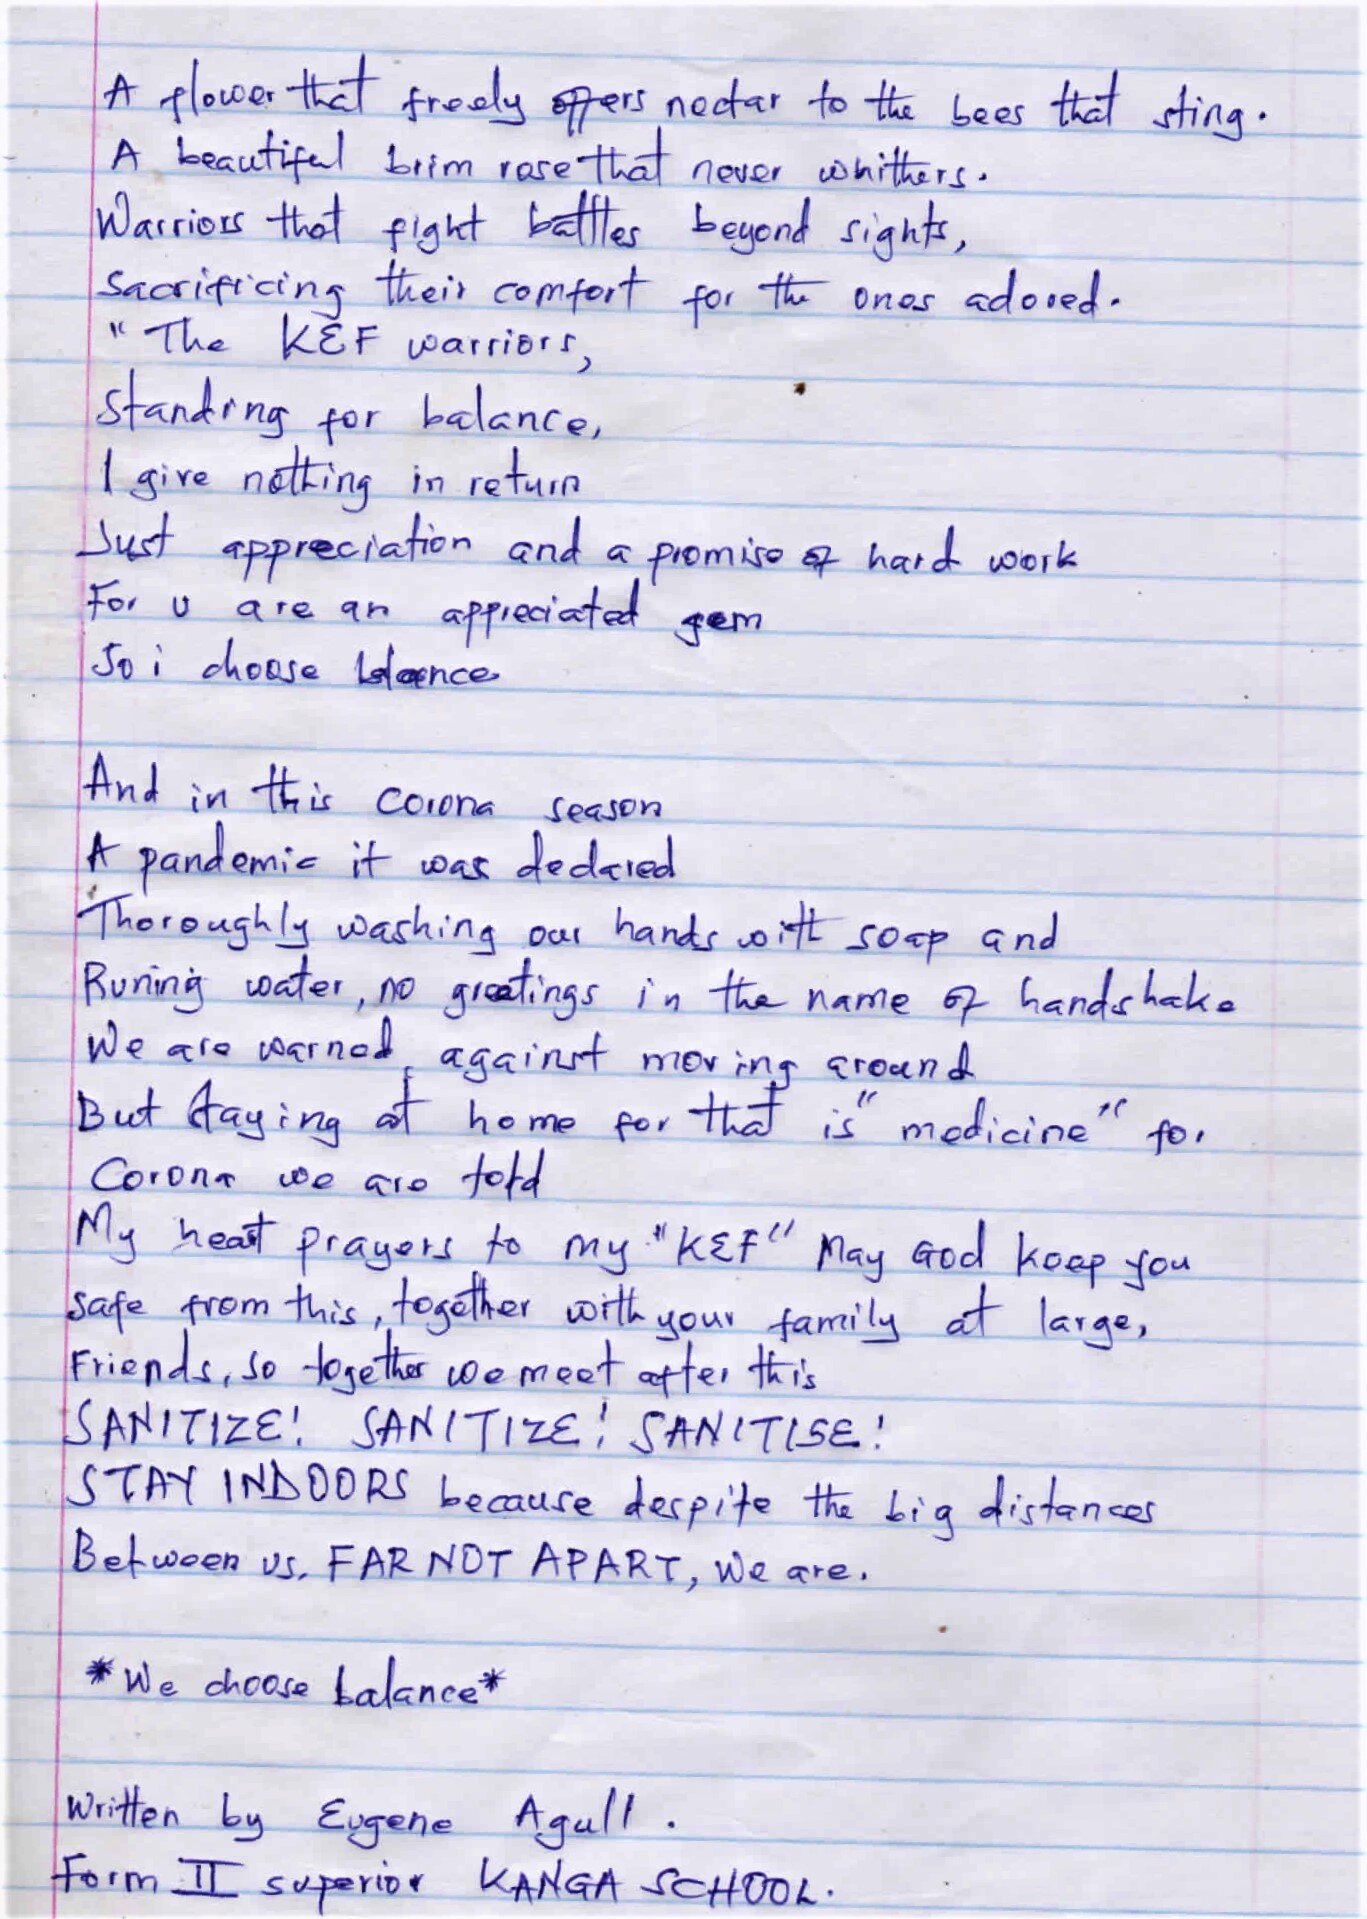 A flower that freely offers nectar to the bees that sting.
A beautiful brim rose that never whithers.
Warriors that fight battles beyond sights,
Sacrificing their comfort for the ones adored.
"The KEF warriors,
Standing for balance,
I give nothing in return
Just appreciation and a promise of hard work
For u are an appreciated gem
So i choose balance
And in this corona season
A pandemic it was declared
Thoroughly washing our hands with soap and
Runing water, no greetings in the name of handshake
We are warned against moving around
But staying at home for that is "medicine" for
Corona we are told
My heart prayers to my "KEF" May God keep you
safe from this, together with your family at large,
Friends, so together we meet after this
SANITIZE! SANITIZE! SANITISE!
STAY INDOORS because despite the big distances
Between us, FAR NOT APART, we are.
*We choose balance*
Written by Eugene Agull.
Form II superior KANGA SCHOOL.